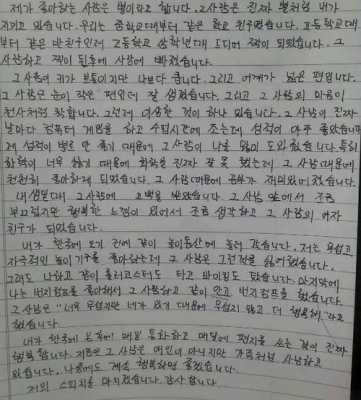 제가 좋아하는 사람은 별이라고 합니다. 그 사람은 진짜 별처럼 내가
지키고 있습니다. 우리는 중학교때부터 같은 학교 친구였습니다. 고등학교때
부터 같은 반 친구인데 고등학교 삼학년때 드디어 짝이 되었습니다. 그
사람하고 짝이 된후에 사랑에 빠졌습니다.
그 사람이 키가 보통이지만 나보다 큽니다. 그리고 어깨가 넓은 편입니다.
그 사람은 눈이 작은 편인데 잘 생겼습니다. 그리고 그 사람의 마음이
천사처럼 착합니다. 그런데 이상한 것이 하나 있습니다. 그 사람이 진짜
날마다 컴퓨터 게임을 하고 수업시간에 조는데 성적이 아주 좋았습니다
제 성적이 별로 안 좋기 때문에 그 사람이 나를 많이 도와줬습니다. 특히
화학이 너무 싫기 때문에 화학을 진짜 잘 못 했는데 그 사람 때문에
천천히 좋아하게 되었습니다. 그 사람 때문에 공부가 재미있어졌습니다.
내 생일때 그 사람에 고백을 받았습니다. 그 사람 앞에서 조금
부끄럽지만 행복한 느낌이 있어서 조금 생각하고 그 사람의 여자
친구가 되었습니다.
내가 한국에 오기 전에 같이 놀이동산에 놀러 갔습니다. 저는 무섭고
자극적인 놀이기구를 좋아하는데 그 사람은 그런것을 싫어했습니다.
그래도 나하고 같이 롤러코스터도 타고 바이킹도 탔습니다. 마지막에
나는 번지점프를 좋아해서 그 사람하고 같이 안고 번지점프를 했습니다.
그 사람은 "너무 무섭지만 네가 있기 때문에 무섭지 않고 더 행복해."라고
했습니다.
내가 한국에 온후에 매일 통화하고 매달에 편지를 쓰는 것이 진짜
행복합니다. 지금은 그 사람은 애인이 아니지만 가족처럼 사랑하고
있습니다. 나중에도 계속 행복하면 좋겠습니다.
저의 스피치를 마치겠습니다. 감사합니다